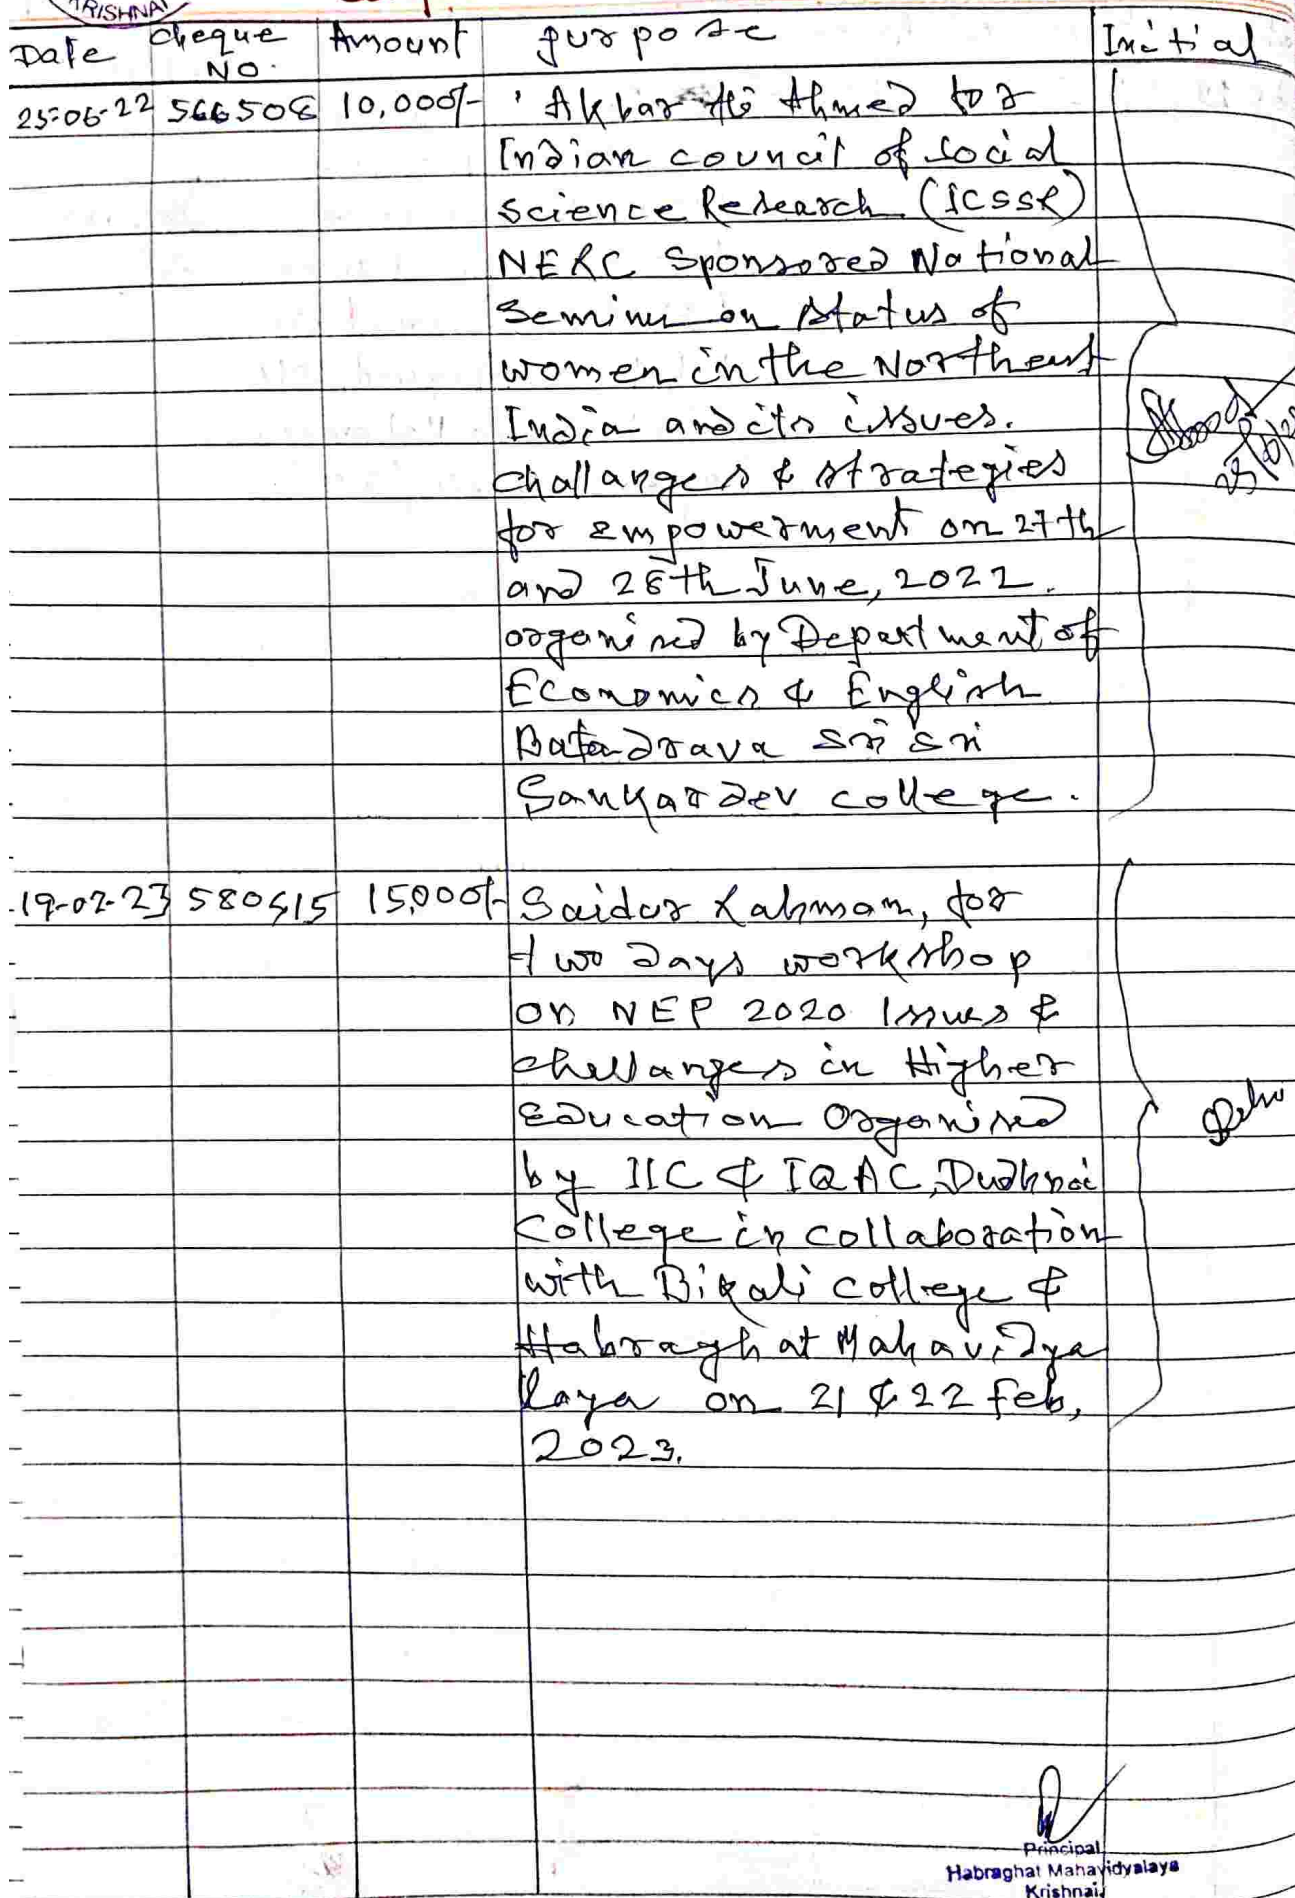 KRISHNAI
Date Cheque NO. Amount purpose Initial
25-06-22 566508 10,000/- Akbar Ali Ahmed for
Indian council of social
science Research (ICSSR)
NERC Sponsored National
Seminer on status of
women in the Northeast
India and its issues.
challanges & strategies
for empowerment on 27th
and 28th June, 2022.
organised by Department of
Economics & English
Batadrava Sri Sri
Sankardev college.
19-02-23 580515 15,000/- Saidur Rahman, for
two days workshop
on NEP 2020 Issues &
challanges in Higher
Education Organised
by IIC & IQAC, Dudhnoi
College in collaboration
with Bikali college &
Habraghat Mahavidya
laya on 21 & 22 Feb,
2023.
Principal
Habraghat Mahavidyalaya
Krishnai